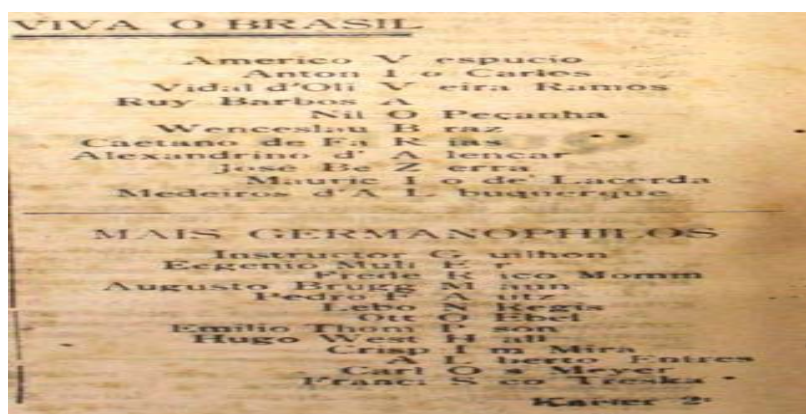 VIVA O BRASIL
Americo V espucio
Anton I o Carlos
Vidal d'Oli V eira Ramos
Ruy Barbos A
Nil O Peçanha
Wenceslau B raz
Caetano de Fa R ias
Alexandrino d' A lencar
José Be Z erra
Mauric I o de Lacerda
Medeiros d'A L buquerque
MAIS GERMANOPHILOS
Instructor G uilhon
Eegenio Mull E r
Frede R ico Momm
Augusto Brugg M ann
Pedro F A utz
Lebo N Regis
Ott O Ebel
Emilio Thom P son
Hugo West H all
Crisp I m Mira
A L berto Entres
Carl O s Meyer
Franci S co Treska